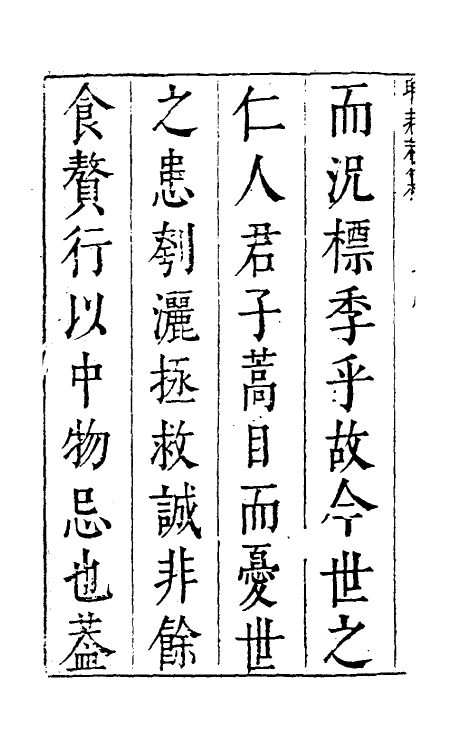 而況標季乎故今世之
仁人君子蒿目而憂世
之患刳灑拯救誠非餘
食贅行以中物忌也蓋